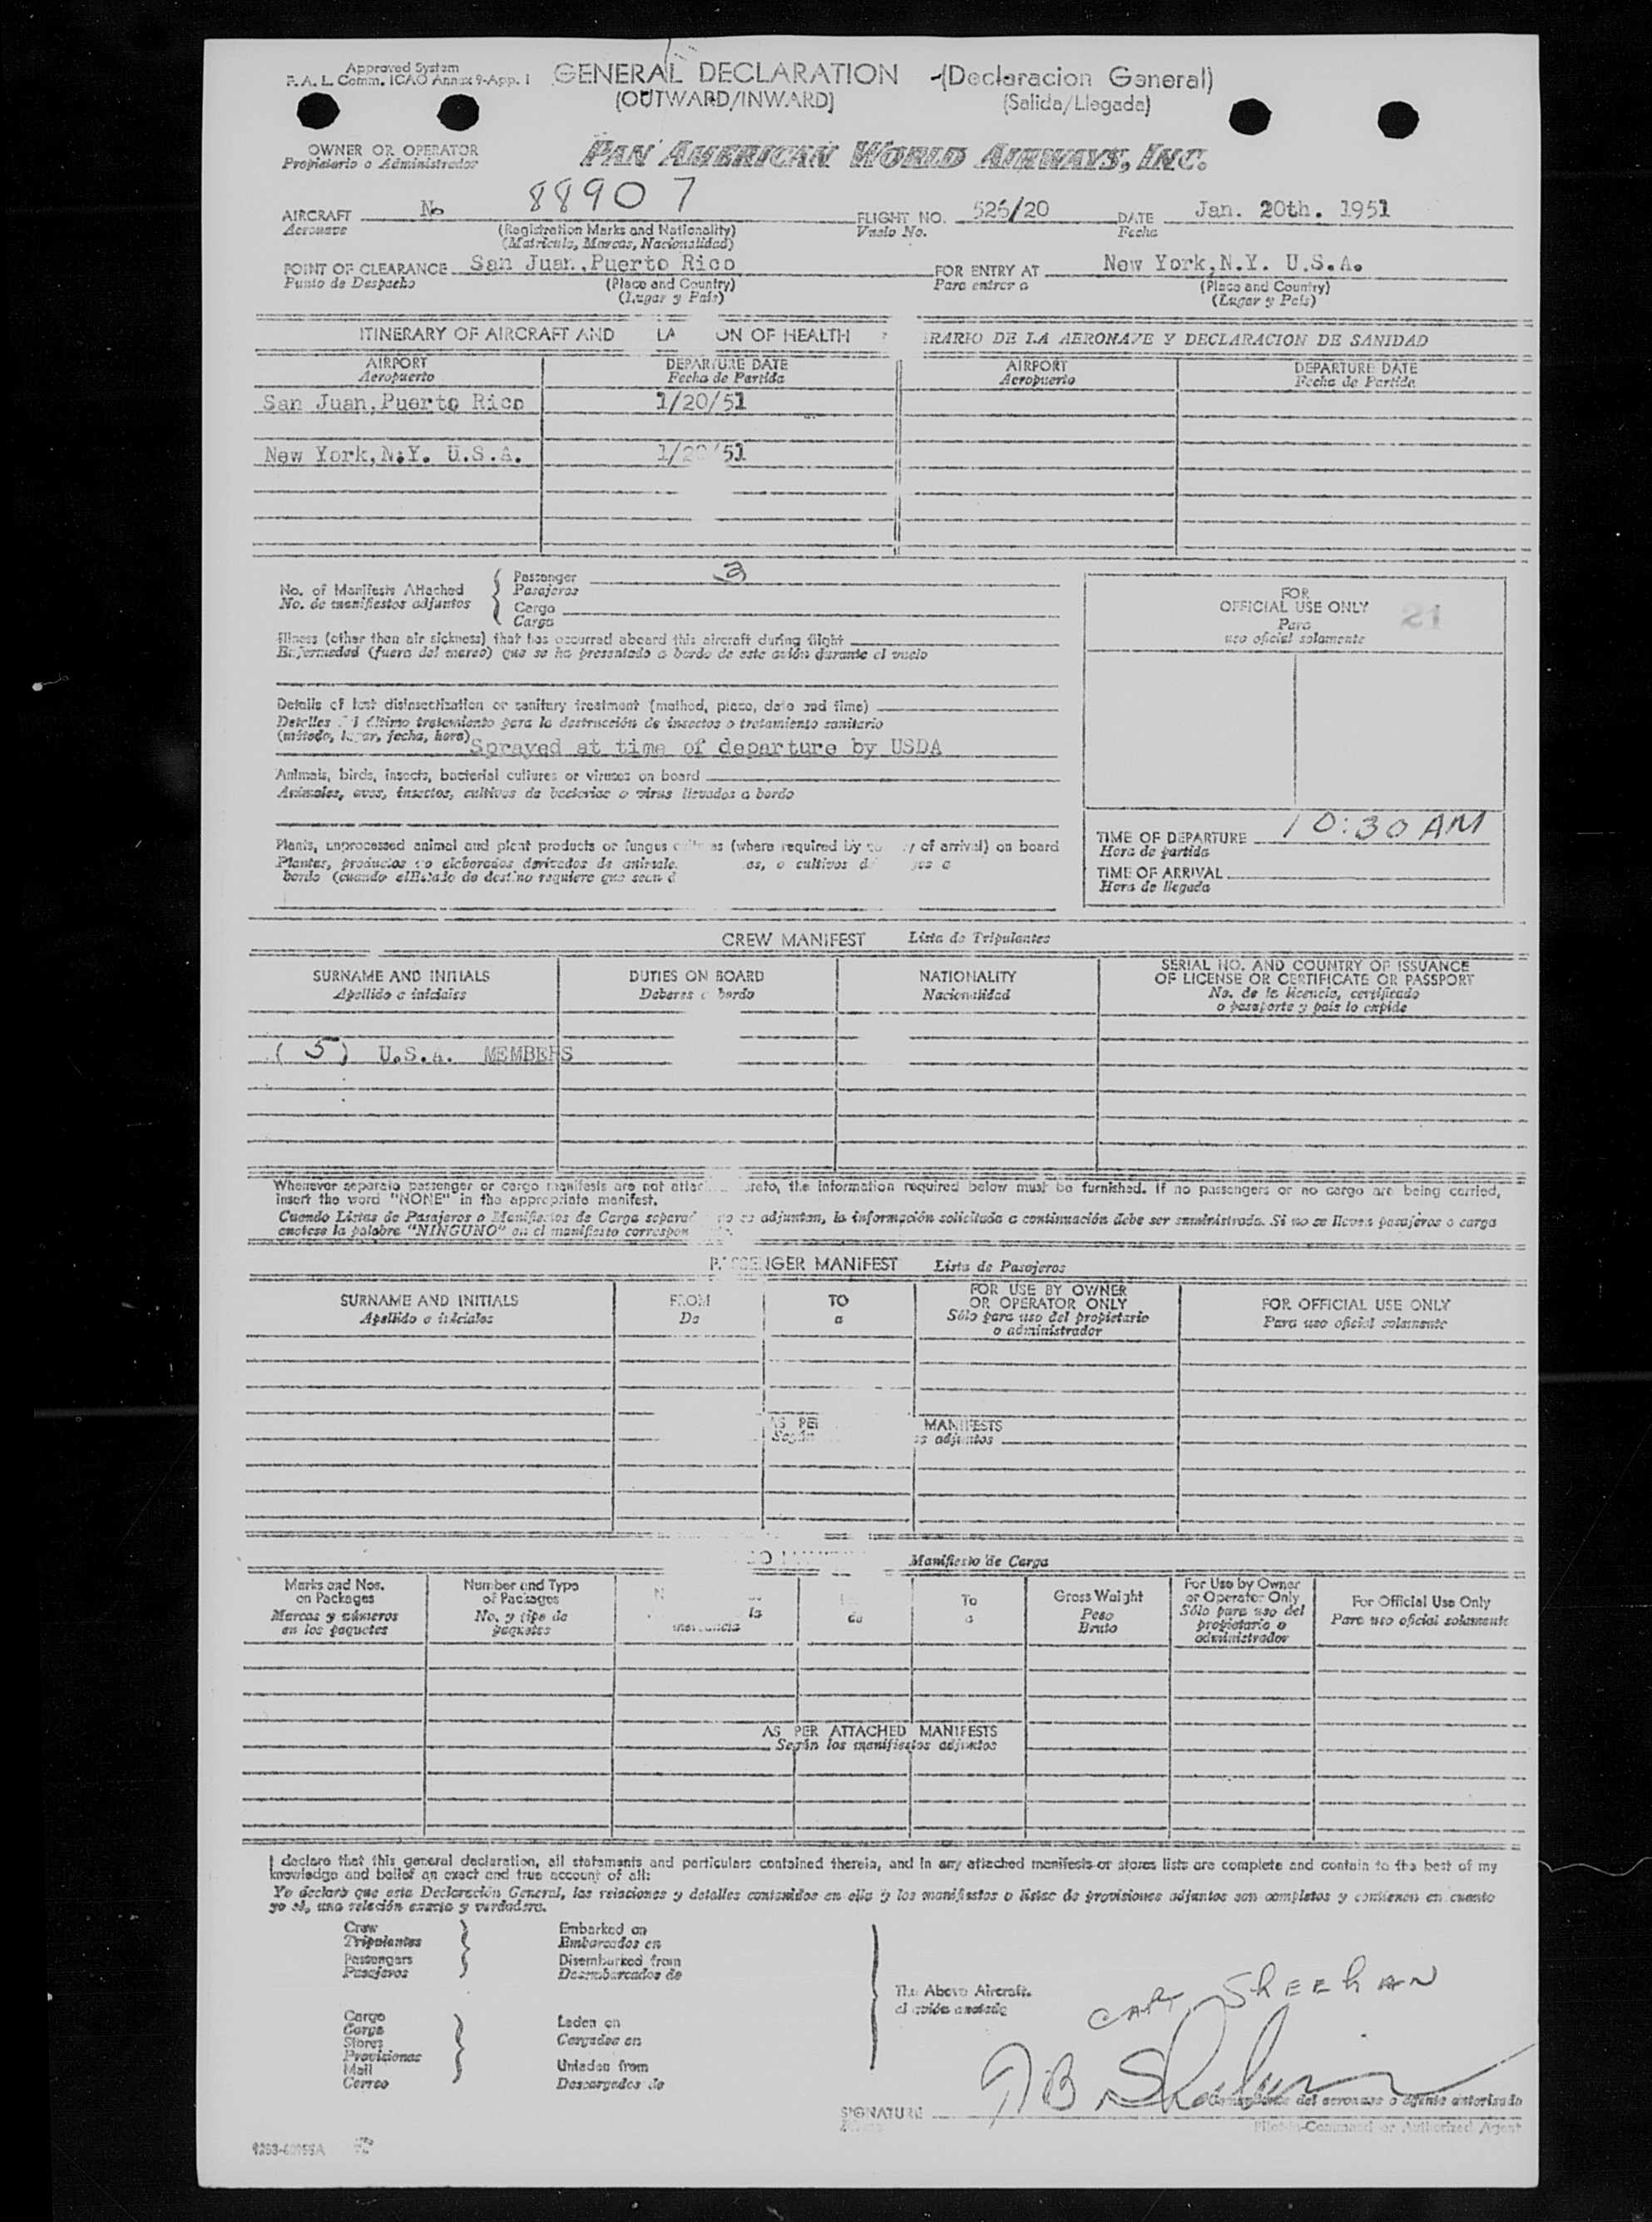 Approved System
F.A.L. Comm. ICAO Annex 9-App. I
GENERAL DECLARATION -(Declaracion General)
(OUTWARD/INWARD) (Salida/Llegada)
OWNER OR OPERATOR
Propietario o Administrador
PAN AMERICAN WORLD AIRWAYS, INC.
AIRCRAFT No 88907 FLIGHT NO. 526/20 DATE Jan. 20th. 1951
Aeronave (Registration Marks and Nationality) Vuelo No. Fecha
(Matricula, Marcas, Nacionalidad)
POINT OF CLEARANCE San Juan, Puerto Rico FOR ENTRY AT New York, N.Y. U.S.A.
Punto de Despacho (Place and Country) Para entrar a (Place and Country)
(Lugar y País) (Lugar y País)
ITINERARY OF AIRCRAFT AND LA ON OF HEALTH RARIO DE LA AERONAVE Y DECLARACION DE SANIDAD
AIRPORT DEPARTURE DATE AIRPORT DEPARTURE DATE
Aeropuerto Fecha de Partida Aeropuerto Fecha de Partida
San Juan, Puerto Rico 1/20/51
New York, N.Y. U.S.A. 1/20/51
No. of Manifests Attached
No. de manifiestos adjuntos
Passenger 3
Pasajeros
Cargo
Carga
FOR
OFFICIAL USE ONLY 21
Para
uso oficial solamente
Illness (other than air sickness) that has occurred aboard this aircraft during flight
Enfermedad (fuera del mareo) que se ha presentado a bordo de este avión durante el vuelo
Details of last disinsectization or sanitary treatment (method, place, date and time)
Detalles l último tratamiento para la destrucción de insectos o tratamiento sanitario
(método, lugar, fecha, hora) Sprayed at time of departure by USDA
Animals, birds, insects, bacterial cultures or viruses on board
Animales, aves, insectos, cultivos de bacterias o virus llevados a bordo
Plants, unprocessed animal and plant products or fungus as (where required by y of arrival) on board
Plantas, productos no elaborados derivados de animale as, o cultivos d
bordo (cuando el Estado de destino requiere que sean d
TIME OF DEPARTURE 10:30 AM
Hora de partida
TIME OF ARRIVAL
Hora de llegada
CREW MANIFEST Lista de Tripulantes
SURNAME AND INITIALS DUTIES ON BOARD NATIONALITY SERIAL NO. AND COUNTRY OF ISSUANCE
OF LICENSE OR CERTIFICATE OR PASSPORT
Apellido e iniciales Deberes a bordo Nacionalidad No. de la licencia, certificado
o pasaporte y país lo expide
(5) U.S.A. MEMBERS
Whenever separate passenger or cargo manifests are not attac reto, the information required below must be furnished. If no passengers or no cargo are being carried,
insert the word "NONE" in the appropriate manifest.
Cuando Listas de Pasajeros o Manifiestos de Carga separad no se adjuntan, la información solicitada a continuación debe ser suministrada. Si no se llevan pasajeros o carga
anotese la palabra "NINGUNO" en el manifiesto correspon
PASSENGER MANIFEST Lista de Pasajeros
SURNAME AND INITIALS FROM TO FOR USE BY OWNER
OR OPERATOR ONLY FOR OFFICIAL USE ONLY
Apellido e iniciales De a Sólo para uso del propietario
o administrador Para uso oficial solamente
AS PER MANIFESTS
Según adjuntos
Manifiesto de Carga
Marks and Nos.
on Packages
Marcas y números
en los paquetes
Number and Type
of Packages
No. y tipo de
paquetes
N
la
mercancia
de
To
a
Gross Weight
Peso
Bruto
For Use by Owner
or Operator Only
Sólo para uso del
propietario o
administrador
For Official Use Only
Para uso oficial solamente
AS PER ATTACHED MANIFESTS
Según los manifiestos adjuntos
I declare that this general declaration, all statements and particulars contained therein, and in any attached manifests or stores lists are complete and contain to the best of my
knowledge and belief an exact and true account of all:
Yo declaro que esta Declaración General, las relaciones y detalles contenidos en ella y los manifiestos o listas de provisiones adjuntos son completos y contienen en cuanto
yo sé, una relación exacta y verdadera.
Crew Embarked on
Tripulantes Embarcados en
Passengers Disembarked from
Pasajeros Desembarcados de
The Above Aircraft.
el avión anotado
Cargo Laden on
Carga Cargados en
Stores
Provisiones
Mail Unladen from
Correo Descargados de
CAPT. SHEEHAN
SIGNATURE
del aeronave o agente autorizado
Pilot-in-Command or Authorized Agent